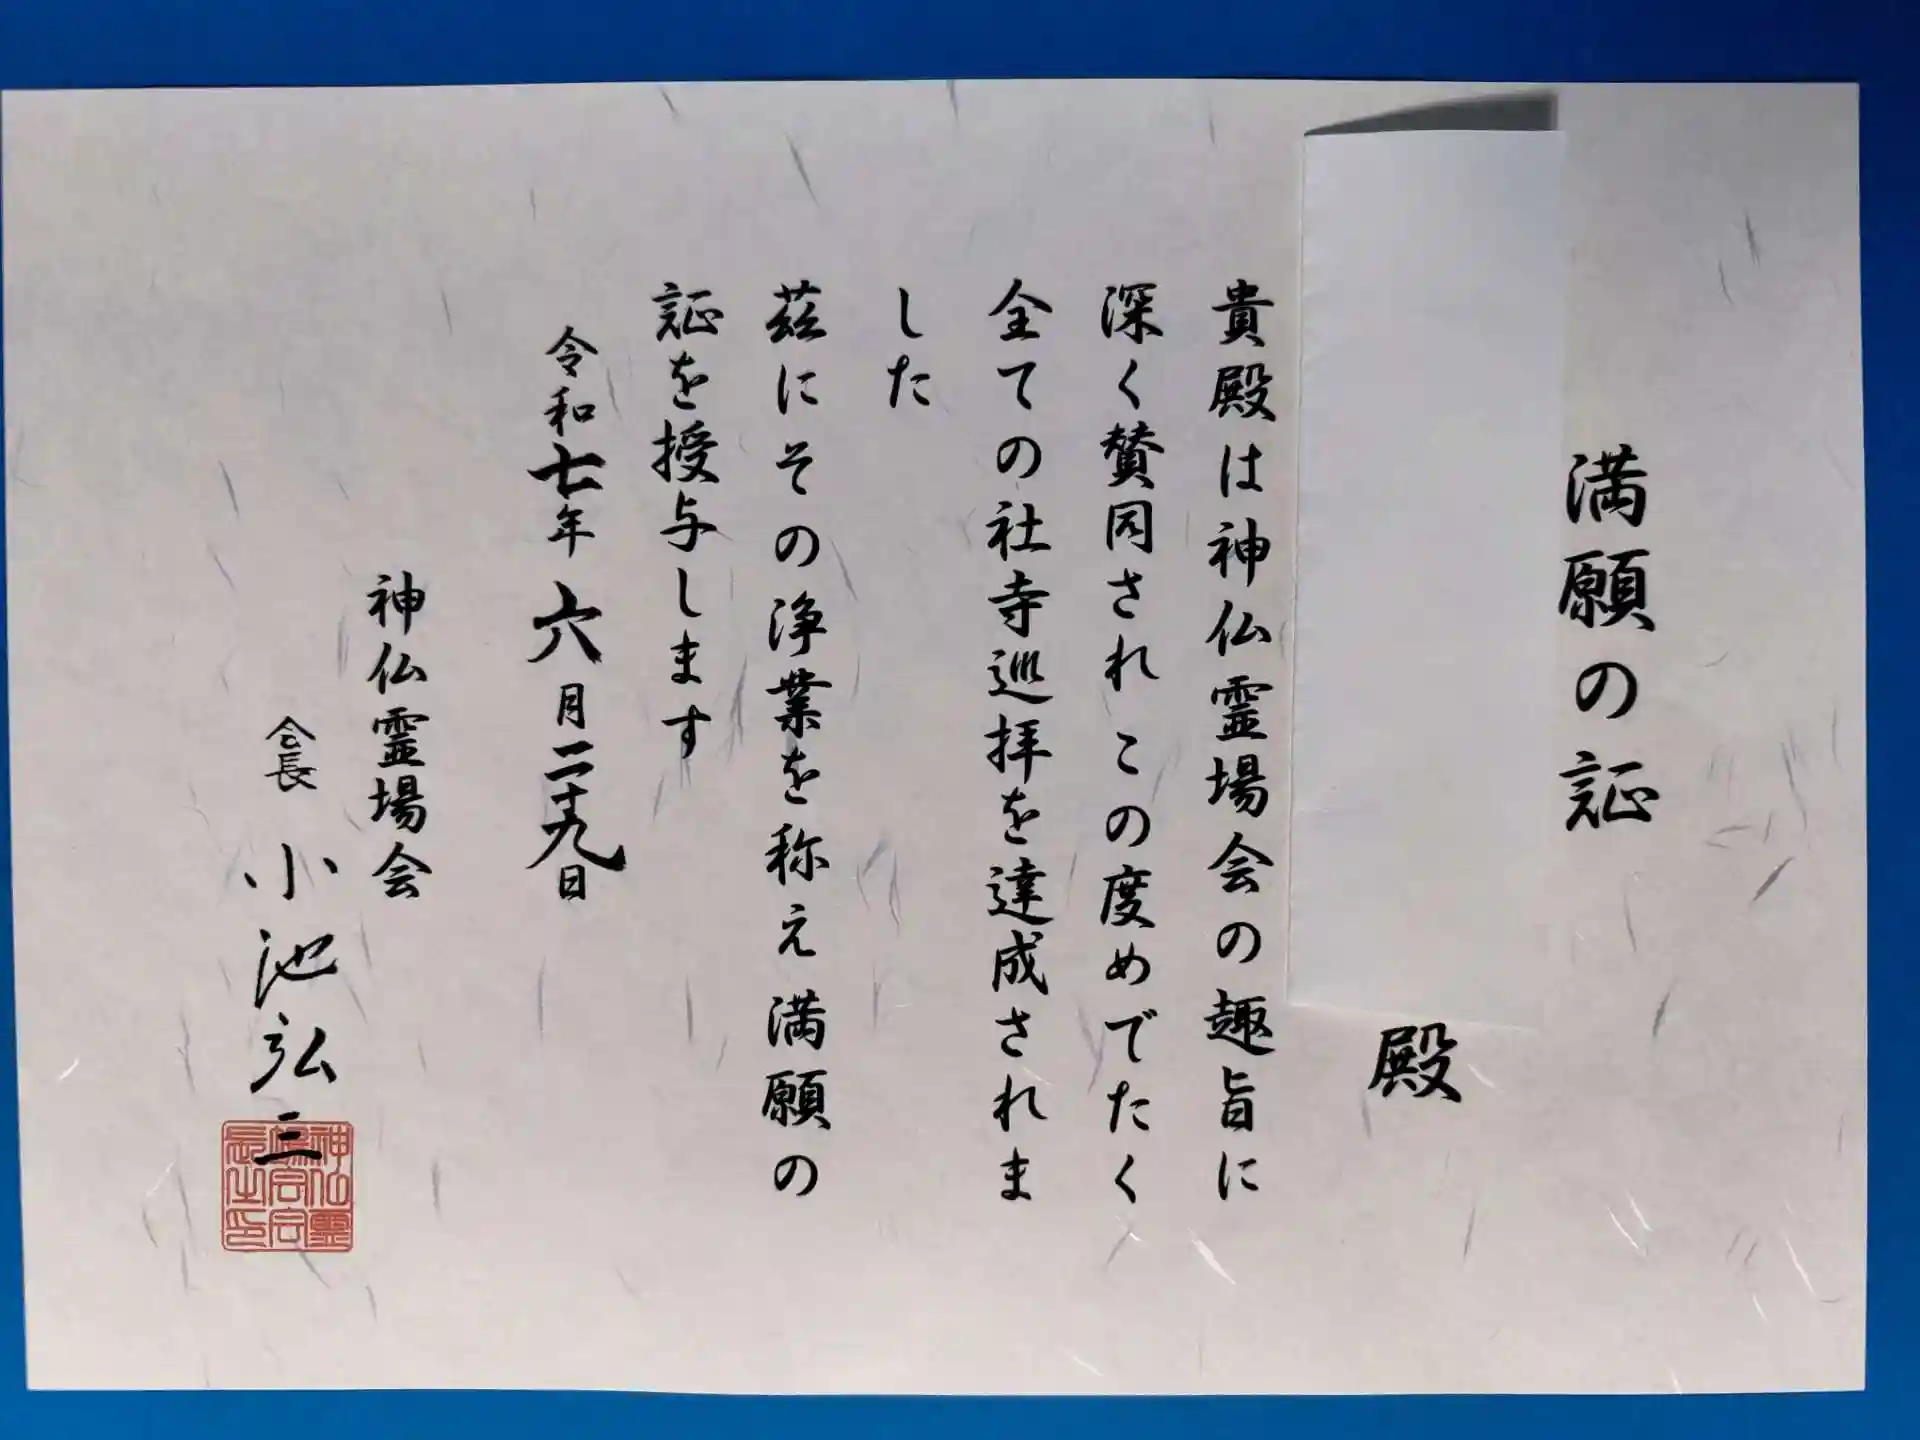 満願の証
殿
貴殿は神仏霊場会の趣旨に
深く賛同されこの度めでたく
全ての社寺巡拝を達成されま
した
茲にその浄業を称え満願の
証を授与します
令和七年六月二十九日
神仏霊場会
会長 小池弘三
神仏霊場会会長之印